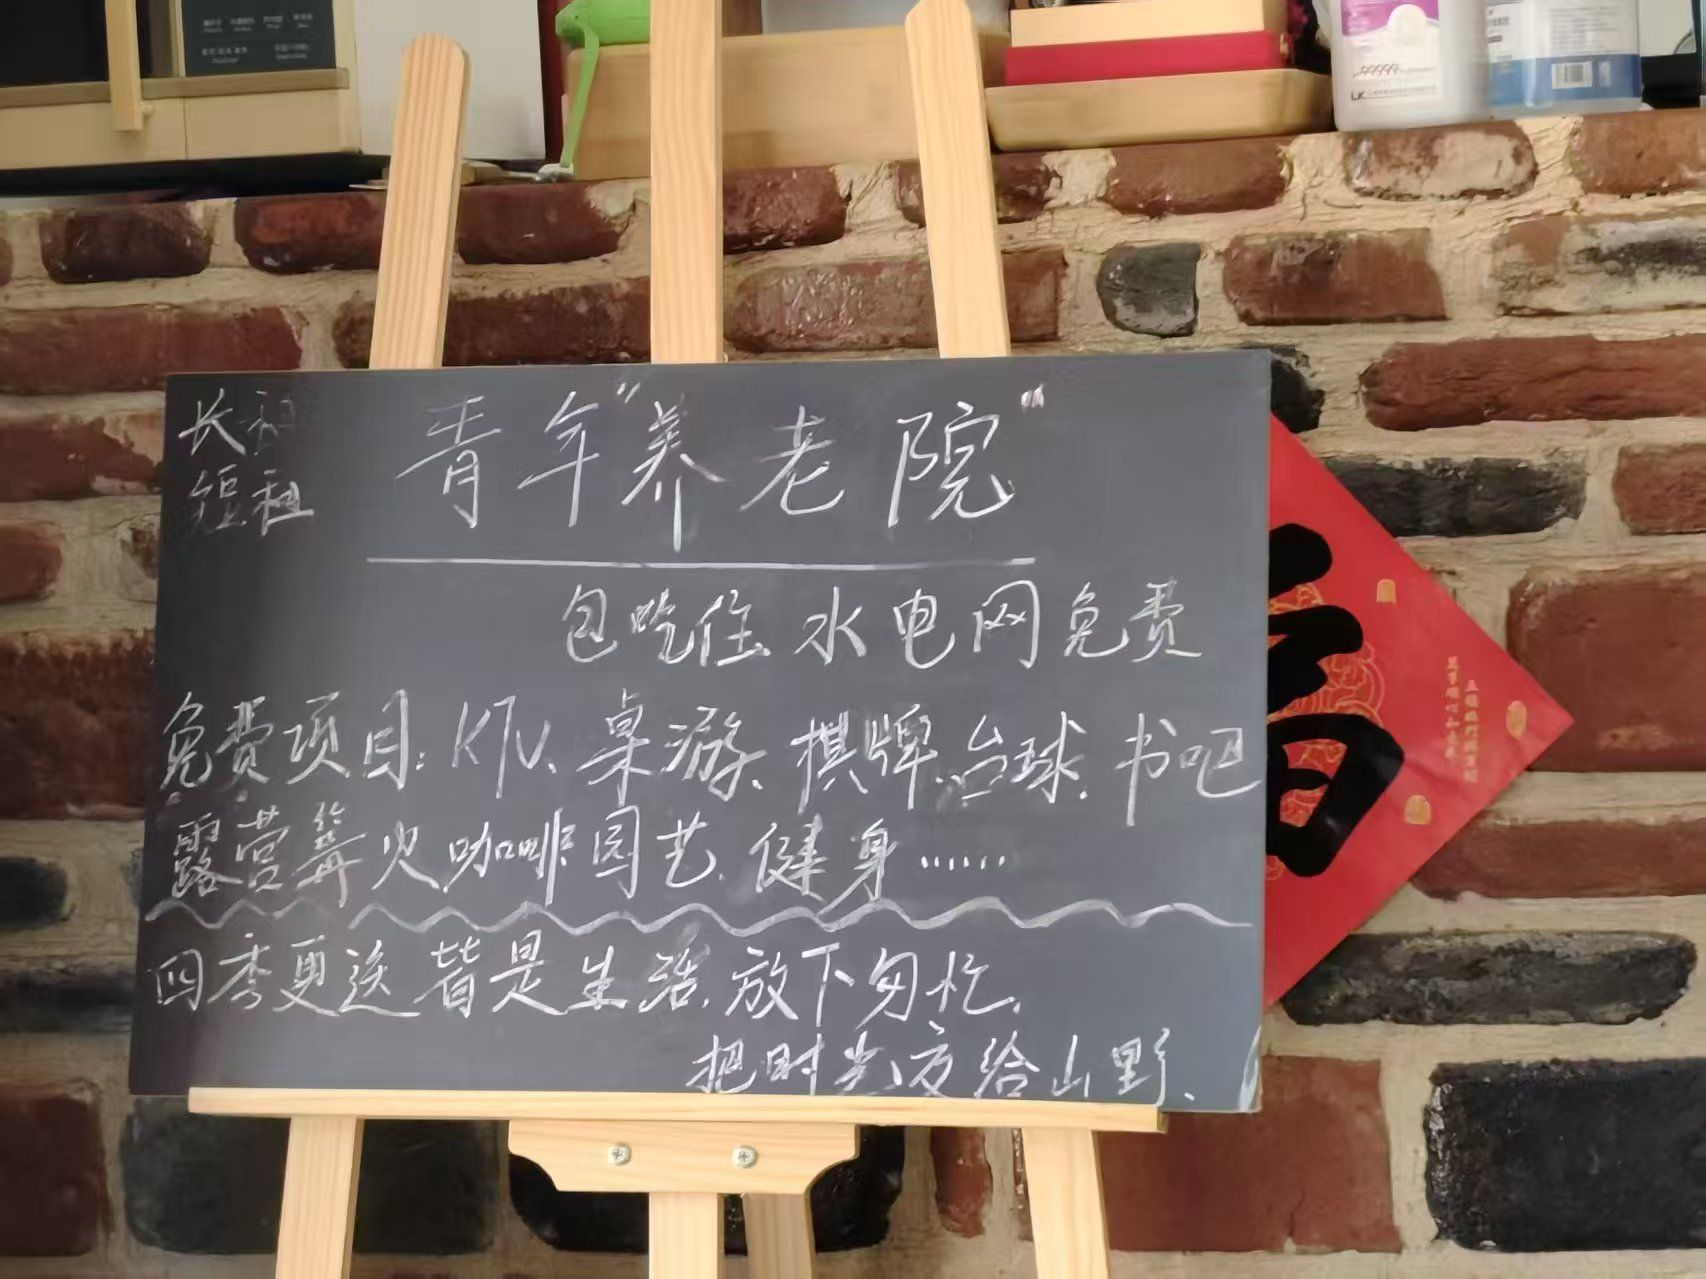 长租
短租
青年"养老院"
包吃住 水电网免费
免费项目: KTV、桌游、棋牌、台球、书吧
露营篝火、咖啡、园艺、健身……
四季更迭皆是生活、放下匆忙、
把时光交给山野、
99999
LK